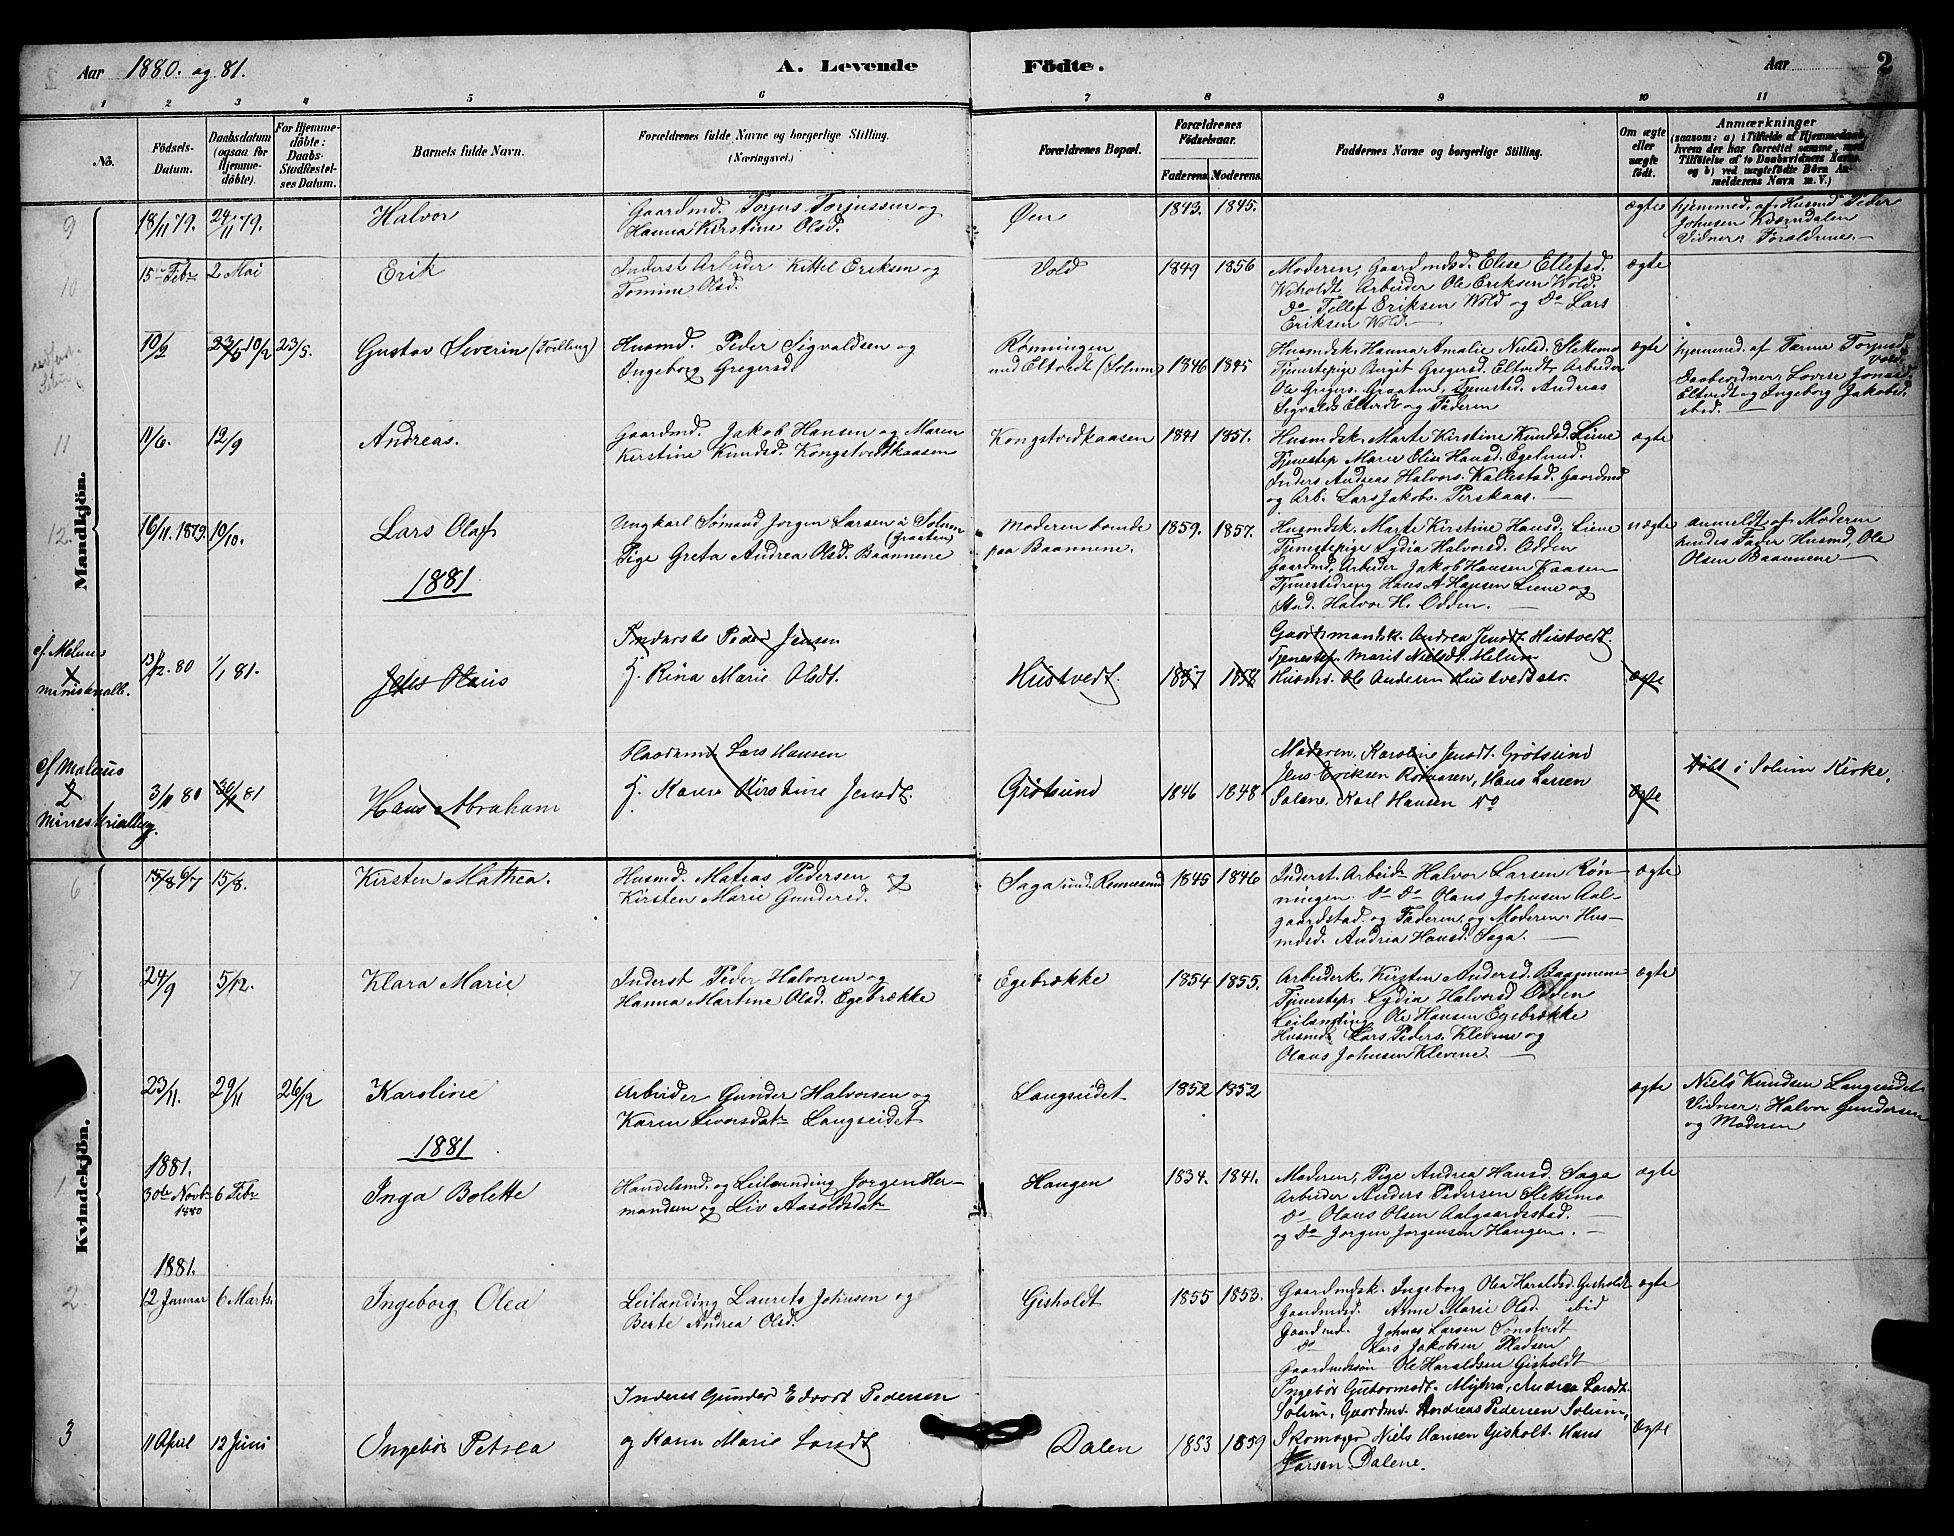 Aar 1880. og 81. A. Levende Födte. Aar 2
1 2 3 4 5 6 7 8 9 10 11
No. Födsels-Datum. Daabsdatum (ogsaa for Hjemme-döbte). For Hjemme-döbte: Daabs-Stadfæstel-ses Datum. Barnets fulde Navn. Forældrenes fulde Navne og borgerlige Stilling. (Næringsvei.) Forældrenes Bopæl. Forældrenes Födselsaar. Faderens. Moderens. Faddernes Navne og borgerlige Stilling. Om ægte eller uægte födt. Anmærkninger (saasom: a) i Tilfælde af Hjemmedaab, hvem der har forrettet samme, med Tilföielse af to Daabsvidners Navne, og b) ved uægtefödte Börn An-melderens Navn m. V.)
Mandkjön.
9 18/11 79. 24/11 79. Halvor
Gaardmd. Torjus Torjussen og
Hanna Kirstine Olsd.
Øen 1843. 1845. ægte
hjemmed. af Husmd Peder
Johnsen Kværndalen
Vidner: Forældrene. —
10 15de Febr 2 Mai Erik
Inderst Arbeider Kittel Eriksen og
Tomine Olsd.
Vold 1849 1856
Moderen, Gaardmdsd. Elise Ellefsd.
Wiholdt, Arbeider Ole Eriksen Wold.
Do Tellef Eriksen Wold og Do Lars
Eriksen Wold. —
ægte
10/2 23/5 10/2 23/5. Gustav Severin (Tvilling)
Husmd. Peder Sigvaldsen og
Ingeborg Gregersd.
Rønningen
und Eltvedt (Solum) 1846 1845
Husmdsk. Hanna Amalie Nielsd. Slekemo
Tjenestepige Birgit Gregersd. Eltvedt, Arbeider
Ole Gregers. Graaten, Tjenested. Andreas
Sigvalds. Eltvedt og Faderen
ægte
hjemmed. af Tarine Torjusd.
Vold.
Daabsvidner: Lovise Jonasd.
Eltvedt og Ingeborg Jakobsd.
ibid. —
11 11/6. 12/9 Andreas.
Gaardmd. Jakob Hansen og Maren
Kirstine Knudsd. Kongstvedkaasen
Kongstvedkaasen 1841 1851.
Husmdsk. Marte Kirstine Knudsd. Liene
Tjenestep. Marie Elise Hansd. Egelund.
Inders. Andreas Halvors. Kallestad. Gaardmd
og Arb. Lars Jakobs. Perskaas. —
ægte
12. 16/11. 1879. 10/10. Lars Olaf
Ungkarl Sømand Jørgen Larsen i Solum
(Graaten)
Pige Greta Andrea Olsd. Baannene
Moderen boende
paa Baannene. 1859. 1857.
Husmdsk. Marte Kirstine Hansd. Liene
Tjenestepige Lydia Halvorsd. Odden
Gaardmd, Arbeider Jakob Hansen Kaasen
Tjenestedreng Hans A Hansen Liene og
And. Halvor H. Odden. —
uægte
anmeldt af Moderen
hendes Fader Husmd, Ole
Olsen Baannene —
1881
cf. Melum
ministerialb.
13/12. 80 1/1 81. Jens Olaus
Inderste Peder Jensen
H. Rina Marie Olsdt.
Hustvedt. 1857 1858
Gaardmandsk. Andrea Jensdt. Hustvedt,
Tjenestep. Marit Nielsdt. Melum
Husmd. Ole Andersen Hustvedtstr.
ægte
cf Melums
2
Ministerialbog.
3/11 80 30/1 81 Hans Abraham
Lars Hansen
H. Karen Kirstine Jensdt.
Grøtsund 1846 1848
Moderen, Karoline Jensdt. Grøtsund
Jens Eriksen Romaasen, Hans Larsen
Karl Hansen Do
ægte
döbt i Solum Kirke.
Kvindekjön.
6 15/8 6/7 15/8. Kirsten Mathea.
Husmd. Matias Pedersen og
Kirsten Marie Gundersd.
Saga und. Rennesund 1845 1846
Inderst. Arbeider Halvor Larsen Røn-
ningen. Do Do Olaus Johnsen Aal-
gaardstad. og Faderen og Moderen. Hus-
mdsd. Andrea Hansd. Saga. —
ægte
7 24/9 5/12. Klara Marie
Inderst Peder Halvorsen og
Hanna Martine Olsd. Egebrække
Egebrække 1854 1855.
Arbeiderk. Kirsten Andersd. Baannene
Tjenestep. Lydia Halvorsd Odden
Leilænding Ole Hansen Egebrække
Husmd. Lars Peders. Klevene og
Olaus Johnsen Klevene. —
ægte
23/11. 29/11 26/12 Karoline
Arbeider Gunder Halvorsen og
Karen Siversdatr Langseidet
Langseidet 1852 1852 ægte
Niels Knudsen Langseidet
Vidner: Halvor Gundersen
og Moderen
1881
1881.
1 30te Novbr 1880 6 Febr Inga Bolette
Handelsmd. og Leilænding Jørgen Her-
mandsen og Liv Aasoldsdatr
Haugen 1834. 1841.
Moderen, Pige Andrea Hansd. Saga
Arbeider Anders Pedersen Slekemo
Do Olaus Olsen Aalgaardsstad. —
og Do Jørgen Jørgensen Haugen. —
ægte
1881.
2 12 Januar 6 Marts. Ingeborg Olea
Leilænding Laurits Johnsen og
Berte Andrea Olsd.
Gisholdt 1855 1853.
Gaardmdsk. Ingeborg Olea Haraldsd. Gisholdt
Gaardmdsd. Anne Marie Olsd. ibid
Gaardmd. Johnas Larsen Sønstvedt
Do Lars Jakobsen Pladsen
Gaardmandssøn Ole Haraldsen Gisholdt
ægte
3 11 April 12 Juni Ingebør Petrea
Inderst Gunder Edvart Pedersen
og Karen Marie Larsdt
Dalen 1853 1859
Ingebør Gutormsdt. Myhra, Andrea Larsdt.
Solum, Gaardmd. Andreas Pedersen Solum,
Skomager Niels Hansen Gisholt. Hans
Larsen Dalene.
ægte